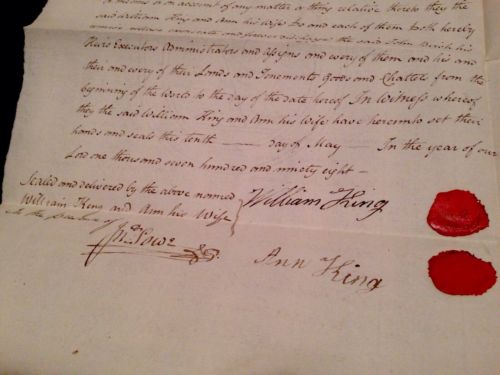 or by means or on account of any matter or thing relative thereto they the
said William King and Ann his wife Do and each of them doth hereby
release and for ever the said John his
Heirs Executors Administrators and assigns and every of them and his and
their and every of their Lands and Tenements Goods and Chattels from the
beginning of the World to the day of the date hereof In Witness whereof
they the said William King and Ann his wife have hereunto set their
hands and seals this tenth day of May In the year of our
Lord one thousand seven hundred and ninety eight
Sealed and delivered by the above named
William King and Ann his Wife
In the presence of
William King
Ann King